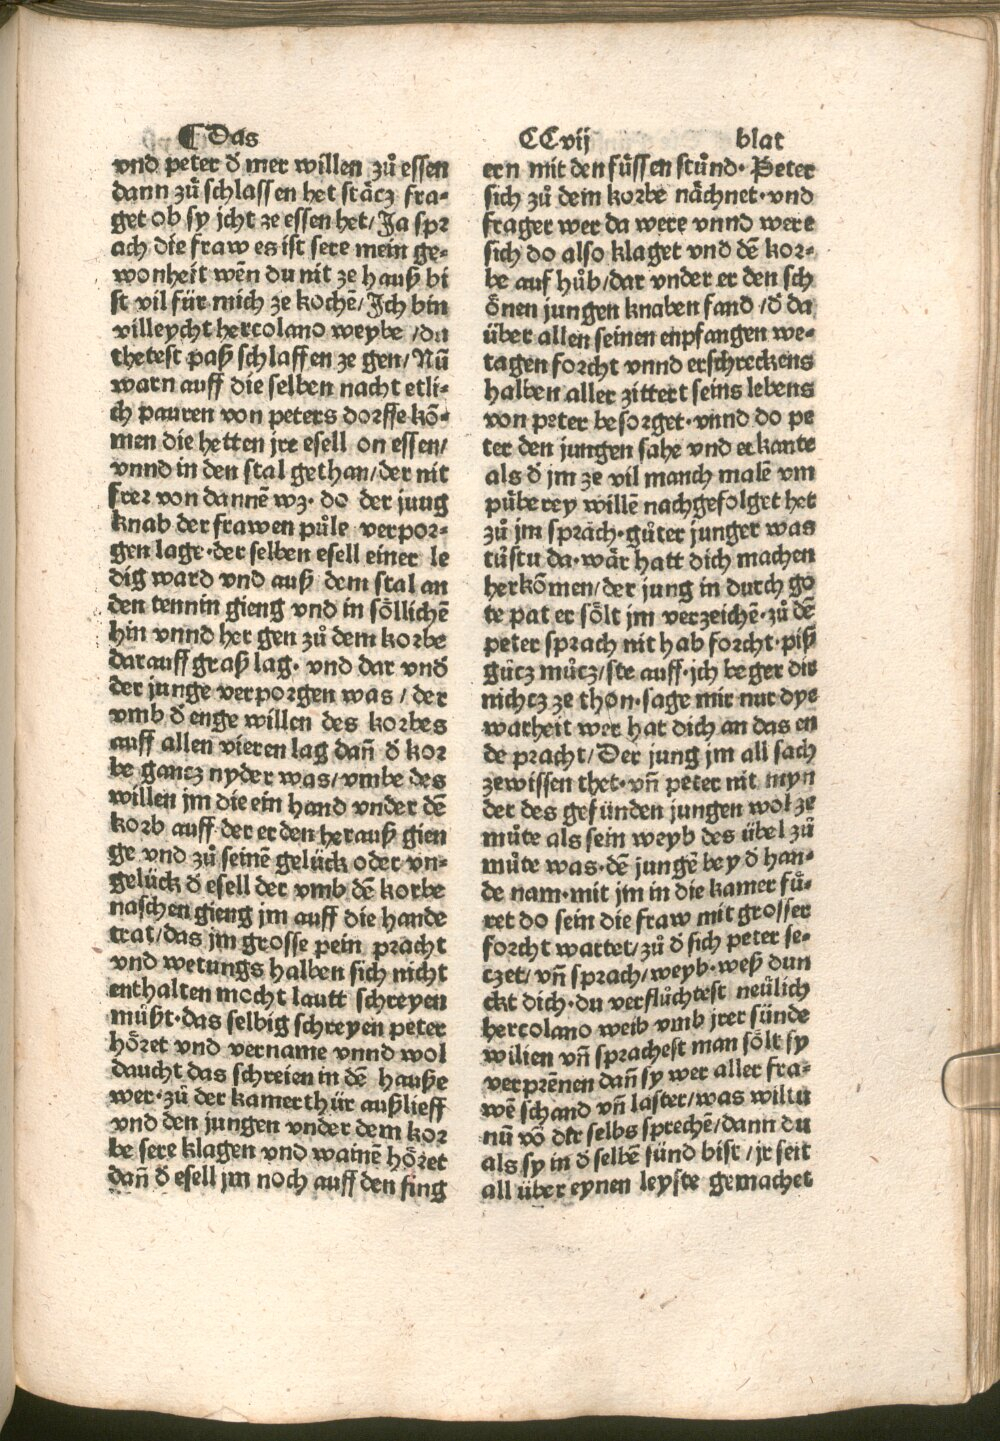 ¶ Das CCvij blat
vnd peter đ mer willen zů essen
dann zů schlaffen het stäcz fra⸗
get ob sy jcht ze essen het/ Ja spr
ach die fraw es ist sere mein ge⸗
wonheit wēn du nit ze hauß bi
st vil für mich ze kochē/ Ich bin
villeycht hercolano weybe /du
thetest paß schlaffen ze gen/ Nū
warn auff die selben nacht etli⸗
ch pauren von peters dorffe kō⸗
men die hetten jre esell on essen/
vnnd in den stal gethan/der nit
frer von dannē wz· do der jung
knab der frawen půle verpor⸗
gen lage·der selben esell einer le
dig ward vnd auß dem stal an
den tennin gieng vnd in söllichē
hin vnnd her gen zů dem korbe
darauff graß lag· vnd dar vnđ
der junge verporgen was / der
vmb đ enge willen des korbes
auff allen vieren lag dan̄ đ kor
be gancz nyder was/vmbe des
willen jm die ein hand vnder dē
korb auff der erden herauß gien
ge vnd zů seinē gelück oder vn⸗
gelück đ esell der vmb dē korbe
naschen gieng jm auff die hande
trat/das jm grosse pein pracht
vnd wetungs halben sich nicht
enthalten mocht lautt schreyen
můßt·das selbig schreyen peter
höret vnd vername vnnd wol
daucht das schreien in dē hauße
wer·zů der kamerthür außlieff
vnd den jungen vnder dem kor
be sere klagen vnd wainē höret
dan̄ đ esell jm noch auff den fing
ern mit den füssen stůnd· Peter
sich zů dem korbe nächnet·vnd
fraget wer da were vnnd were
sich do also klaget vnd dē kor⸗
be auf hůb/dar vnder er den sch
önen jungen knaben fand /đ da
über allen seinen enpfangen we⸗
tagen forcht vnnd erschreckens
halben aller zittert seins lebens
von peter besorget·vnnd do pe
ter den jungen sahe vnd erkante
als đ jm ze vil manch malē vm
půberey willē nachgefolget het
zů jm sprach·gůter junger was
tůstu da·wär hatt dich machen
herkōmen/der jung in durch go
te pat er sölt jm verzeichē·zů dē
peter sprach nit hab forcht·piß
gůcz můcz/ste auff·ich beger dir
nichcz ze thon·sage mir nur dye
warheit wer hat dich an das en
de pracht/Der jung jm all sach
zewissen thet·vn̄ peter nit myn
der des gefunden jungen wol ze
můte als sein weyb des übel zů
můte was·dē jungē bey đ han⸗
de nam·mit jm in die kamer fů⸗
ret do sein die fraw mit grosser
forcht wartet/zů đ sich peter se⸗
czet/ vn̄ sprach/weyb·weß dun
ckt dich·du verflůchtest neůlich
hercolano weib vmb jrer sünde
wilien vn̄ sprachest man sölt sy
verprēnen dan̄ sy wer aller fra⸗
wē schand vn̄ laster/was wiltu
nū vō dir selbs sprechē/dann du
als sy in đ selbē sünd bist /jr seit
all über eynen leyste gemachet